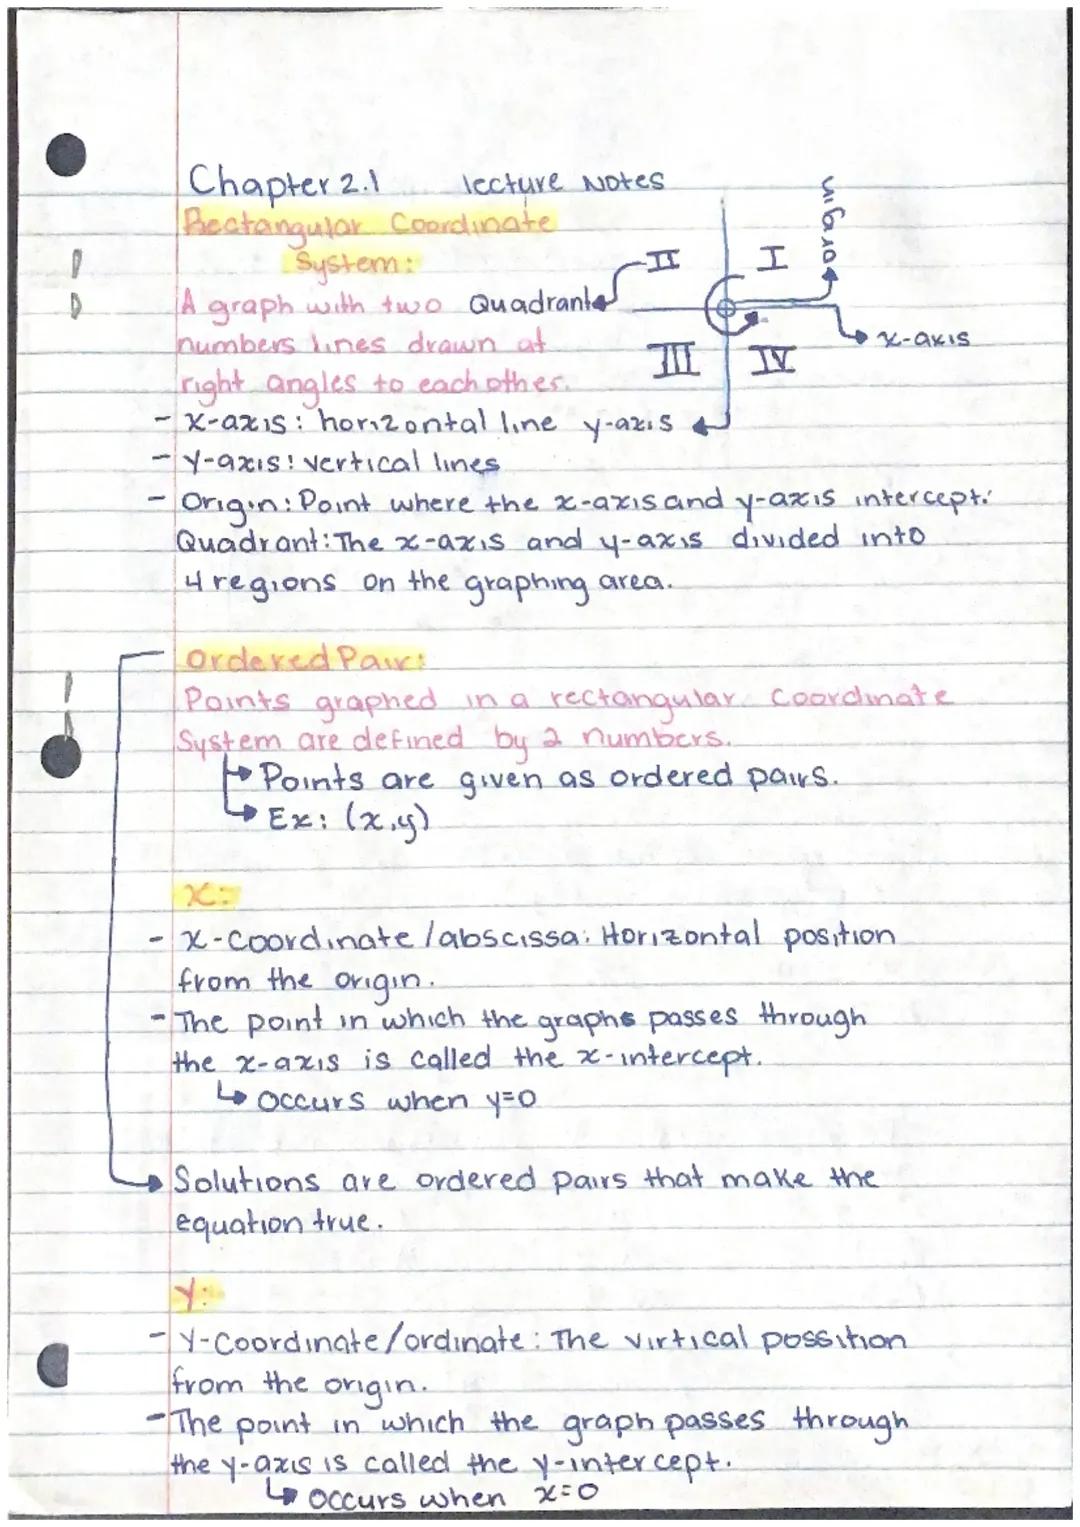 Chapter 2.1 lecture Notes
Rectangular Coordinate
System:
A graph with two
numbers lines drawn at
right angles to each other.
Quadrant
II
I
III
IV
origin
x-axis
y-axis
- X-axis: horizontal line
- Y-axis: vertical lines
- Origin: Point where the x-axis and y-axis intercept.
Quadrant: The x-axis and y-axis divided into
4 regions on the graphing area.
Ordered Pair:
Points graphed in a rectangular Coordinate
System are defined by 2 numbers.
↳ Points are given as ordered pairs.
↳ Ex: (x,y)
X:
- X-Coordinate/abscissa: Horizontal position
from the origin.
- The point in which the graphs passes through
the x-axis is called the x-intercept.
↳ occurs when y=0
→ Solutions are ordered pairs that make the
equation true.
Y:
- Y-Coordinate/ordinate: The virtical possition
from the origin.
- The point in which the graph passes through
the y-axis is called the y-intercept.
↳ occurs when x=0